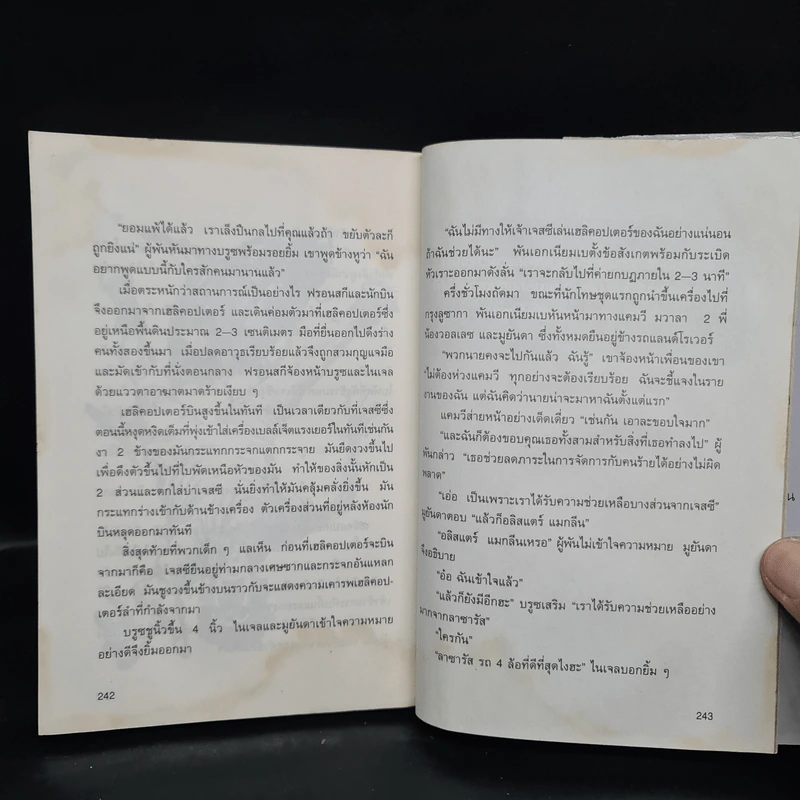 "ยอมแพ้ได้แล้ว เราเล็งปืนกลไปที่คุณแล้วถ้า ขยับตัวละก็
ถูกยิงแน่" ผู้พันหันมาทางบรูซพร้อมรอยยิ้ม เขาพูดข้างหูว่า "ฉัน
อยากพูดแบบนี้กับใครสักคนมานานแล้ว"
เมื่อตระหนักว่าสถานการณ์เป็นอย่างไร ฟรอนสกีและนักบิน
จึงออกมาจากเฮลิคอปเตอร์ และเดินค่อมตัวมาที่เฮลิคอปเตอร์ซึ่ง
อยู่เหนือพื้นดินประมาณ 2–3 เซนติเมตร มือที่ยื่นออกไปดึงร่าง
คนทั้งสองขึ้นมา เมื่อปลดอาวุธเรียบร้อยแล้วจึงถูกสวมกุญแจมือ
และมัดเข้ากับที่นั่งตอนกลาง ฟรอนสกีจ้องหน้าบรูซและไนเจล
ด้วยแววตาอาฆาตมาดร้ายเงียบ ๆ
เฮลิคอปเตอร์บินสูงขึ้นในทันที เป็นเวลาเดียวกับที่เจสซีซึ่ง
ตอนนี้หงุดหงิดเต็มที่พุ่งเข้าใส่เครื่องเบลล์เจ็ตแรงเยอร์ในทันทีเช่นกัน
งา 2 ข้างของมันกระแทกกระจกแตกกระจาย มันยืดงวงขึ้นไป
เพื่อดึงตัวขึ้นไปที่ใบพัดเหนือหัวของมัน ทำให้ของสิ่งนั้นหักเป็น
2 ส่วนและตกใส่บ่าเจสซี นั่นยิ่งทำให้มันคลุ้มคลั่งยิ่งขึ้น มัน
กระแทกร่างเข้ากับด้านข้างเครื่อง ตัวเครื่องส่วนที่อยู่หลังห้องนัก
บินหลุดออกมาทันที
สิ่งสุดท้ายที่พวกเด็ก ๆ แลเห็น ก่อนที่เฮลิคอปเตอร์จะบิน
จากมาก็คือ เจสซียืนอยู่ท่ามกลางเศษซากและกระจกอันแหลก
ละเอียด มันชูงวงขึ้นข้างบนราวกับจะแสดงความเคารพเฮลิคอป-
เตอร์ลำที่กำลังจากมา
บรูซชูนิ้วขึ้น 4 นิ้ว ไนเจลและมูยันดาเข้าใจความหมาย
อย่างดีจึงยิ้มออกมา
242
"ฉันไม่มีทางให้เจ้าเจสซีเล่นเฮลิคอปเตอร์ของฉันอย่างแน่นอน
ถ้าฉันช่วยได้นะ" พันเอกเนียมเบตั้งข้อสังเกตพร้อมกับระเบิด
หัวเราะออกมาดังลั่น "เราจะกลับไปที่ค่ายกบฏภายใน 2–3 นาที"
ครึ่งชั่วโมงถัดมา ขณะที่นักโทษชุดแรกถูกนำขึ้นเครื่องไปที่
กรุงลูซากา พันเอกเนียมเบหันหน้ามาทางแคมวี มวาลา 2 พี่
น้องวอลเลซ และมูยันดา ซึ่งทั้งหมดยืนอยู่ข้างรถแลนด์โรเวอร์
"พวกนายคงจะไปกันแล้ว ฉันรู้" เขาจ้องหน้าเพื่อนของเขา
"ไม่ต้องห่วงแคมวี ทุกอย่างจะต้องเรียบร้อย ฉันจะชี้แจงในราย
งานของฉัน แต่ฉันคิดว่านายน่าจะมาหาฉันตั้งแต่แรก"
แคมวีส่ายหน้าอย่างเด็ดเดี่ยว "เช่นกัน เอาละขอบใจมาก"
"และฉันก็ต้องขอบคุณเธอทั้งสามสำหรับสิ่งที่เธอทำลงไป" ผู้
พันกล่าว "เธอช่วยลดภาระในการจัดการกับคนร้ายได้อย่างไม่ผิด
พลาด"
"เอ่อ เป็นเพราะเราได้รับความช่วยเหลือบางส่วนจากเจสซี"
มูยันดาตอบ "แล้วก็อลิสแตร์ แมกลีน"
"อลิสแตร์ แมกลีนเหรอ" ผู้พันไม่เข้าใจความหมาย มูยันดา
จึงอธิบาย
"อ๋อ ฉันเข้าใจแล้ว"
"แล้วก็ยังมีอีกฮะ" บรูซเสริม "เราได้รับความช่วยเหลืออย่าง
มากจากลาซารัส"
"ใครกัน"
"ลาซารัส รถ 4 ล้อที่ดีที่สุดไงฮะ" ไนเจลบอกยิ้ม ๆ
243
น